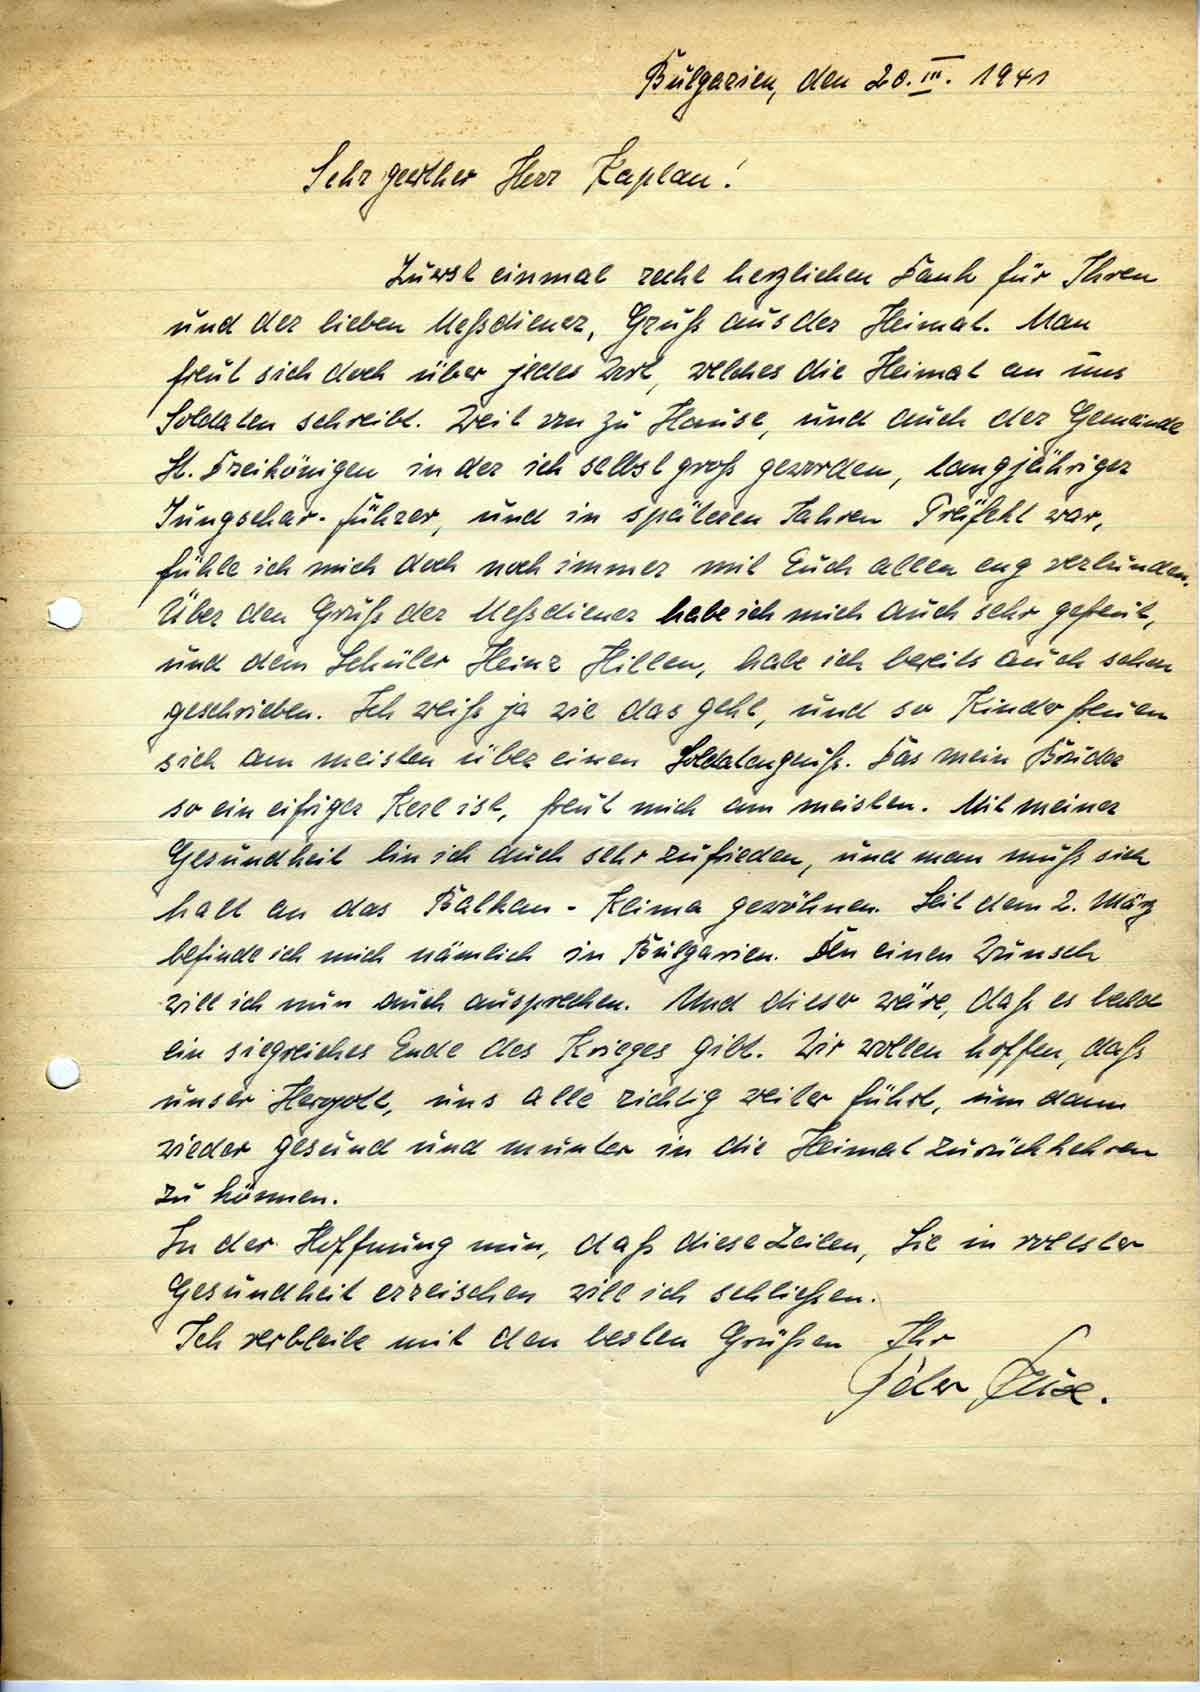 Bulgarien, den 20. III. 1941
Sehr geerther Herr Kaplan!
Zuerst einmal recht herzlichen Dank für Ihren
und der lieben Meßdiener, Gruß aus der Heimat. Man
freut sich doch über jedes Wort, welches die Heimat an uns
Soldaten schreibt. Weit von zu Hause, und auch der Gemeinde
St. Dreikönigen in der ich selbst groß geworden, langjähriger
Jungschar-führer, und in späteren Jahren Präfekt war,
fühle ich mich doch noch immer mit Euch allen eng verbunden.
Über den Gruß der Meßdiener habe ich mich auch sehr gefreut,
und dem Schüler Heinz Hillen, habe ich bereits auch schon
geschrieben. Ich weiß ja wie das geht, und so Kinder freuen
sich am meisten über einen Soldatengruß. Das mein Bruder
so ein eifriger Kerl ist, freut mich am meisten. Mit meiner
Gesundheit bin ich auch sehr zufrieden, und man muß sich
halt an das Balkan-Klima gewöhnen. Seit dem 2. März
befinde ich mich nämlich in Bulgarien. Den einen Wunsch
will ich nun auch aussprechen. Und dieser wäre, daß es bald
ein siegreiches Ende des Krieges gibt. Wir wollen hoffen, daß
unser Herrgott, uns alle richtig weiter führt, um dann
wieder gesund und munter in die Heimat zurückkehren
zu können.
In der Hoffnung nun, daß diese Zeilen, Sie in vollster
Gesundheit erreischen will ich schließen.
Ich verbleibe mit den besten Grüßen Ihr
Peter